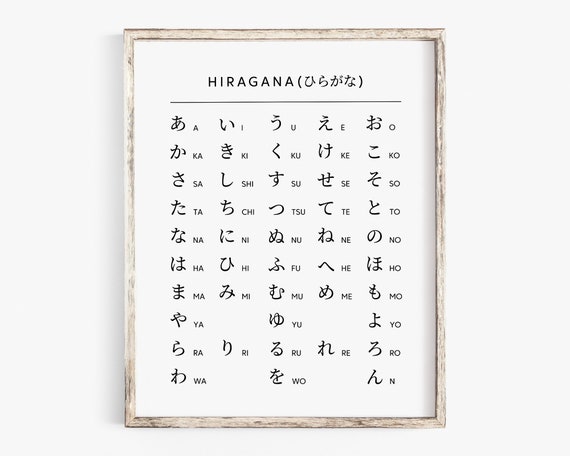 HIRAGANA(ひらがな)
あ A い I う U え E お O
か KA き KI く KU け KE こ KO
さ SA し SHI す SU せ SE そ SO
た TA ち CHI つ TSU て TE と TO
な NA に NI ぬ NU ね NE の NO
は HA ひ HI ふ FU へ HE ほ HO
ま MA み MI む MU め ME も MO
や YA ゆ YU よ YO
ら RA り RI る RU れ RE ろ RO
わ WA を WO ん N